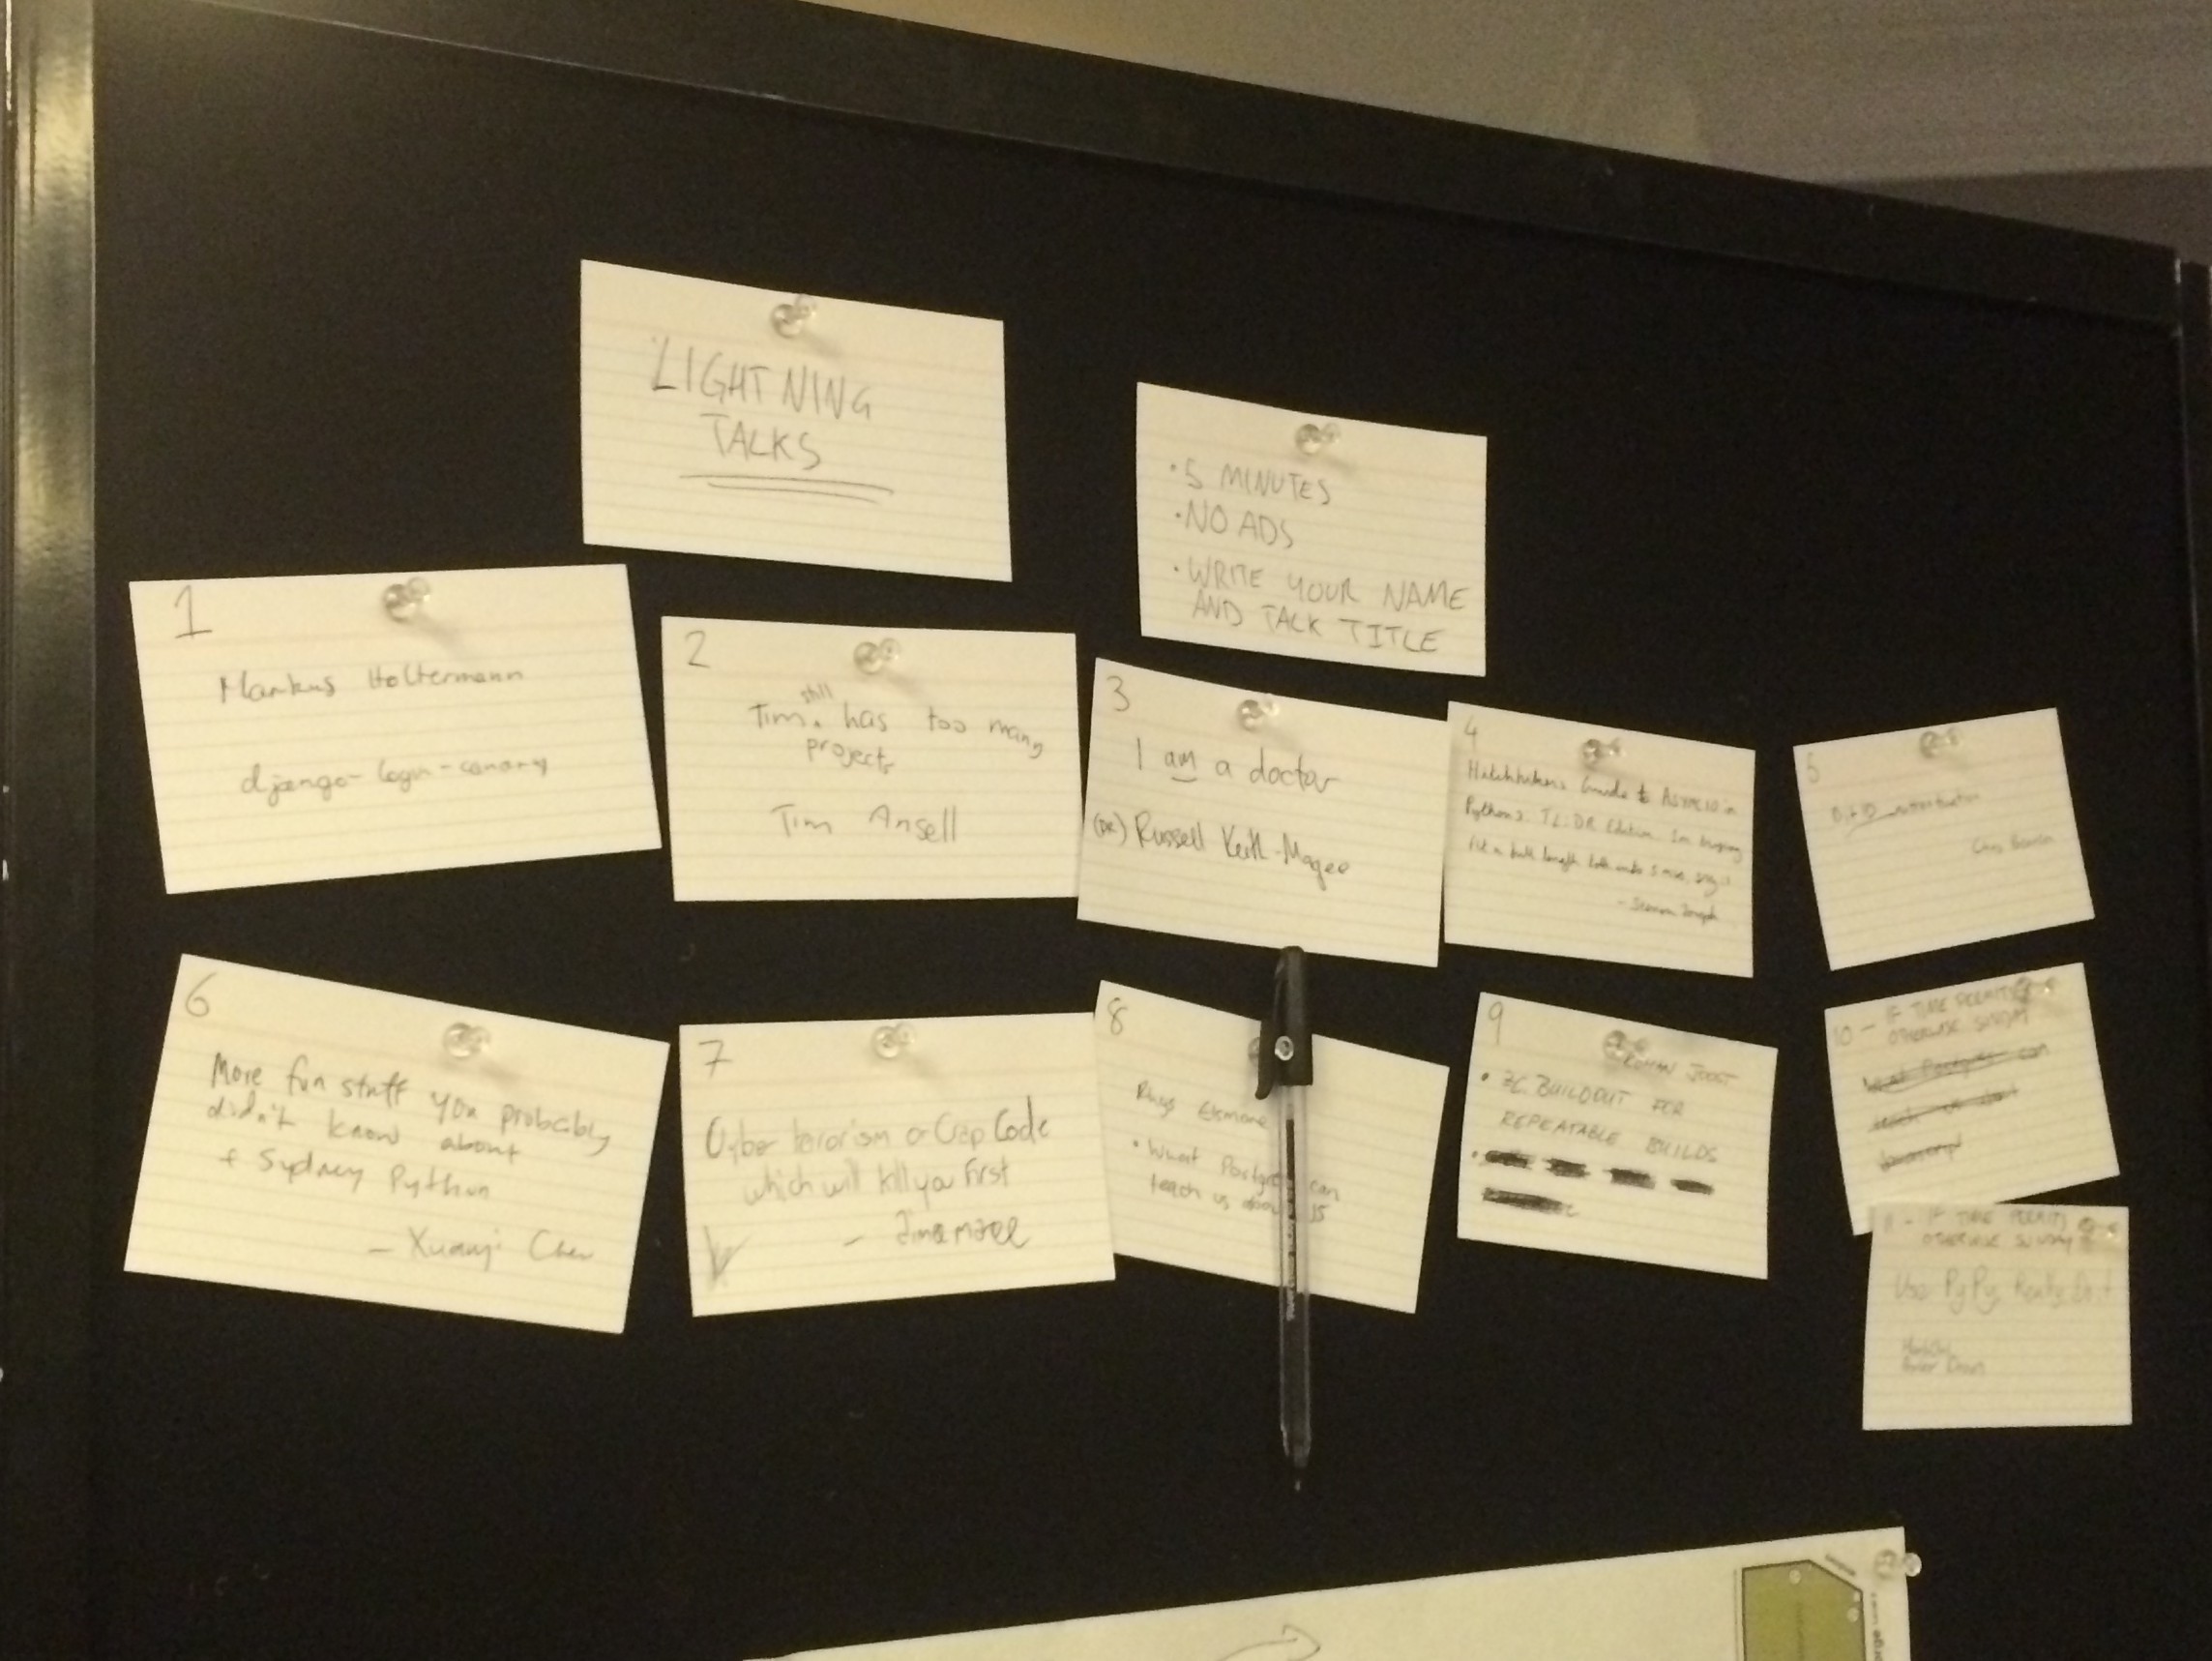 LIGHTNING
TALKS
• 5 MINUTES
• NO ADS
• WRITE YOUR NAME
AND TALK TITLE
1
Markus Holtermann
django-login-canary
2
still
Tim has too many
projects
Tim Ansell
3
I am a doctor
(DR) Russell Keith-Magee
4
Guide to Asyncio in
Python3. TL:DR Edition. I'm
fit a full length talk into 5 min.
5
Chris
6
More fun stuff you probably
didn't know about
+ Sydney Python
- Xuanji
7
Cyber terorism or Crap Code
which will kill you First
8
Rhys Elsmore
• What Postgres can
teach us about JS
9
ROMAN JOOST
• ZC.BUILDOUT FOR
REPEATABLE BUILDS
10 - IF TIME PERMITS
OTHERWISE SUNDAY
What Postgres can
teach us about
Javascript
11 - IF TIME PERMITS
OTHERWISE SUNDAY
Use PyPy. Really. Do it